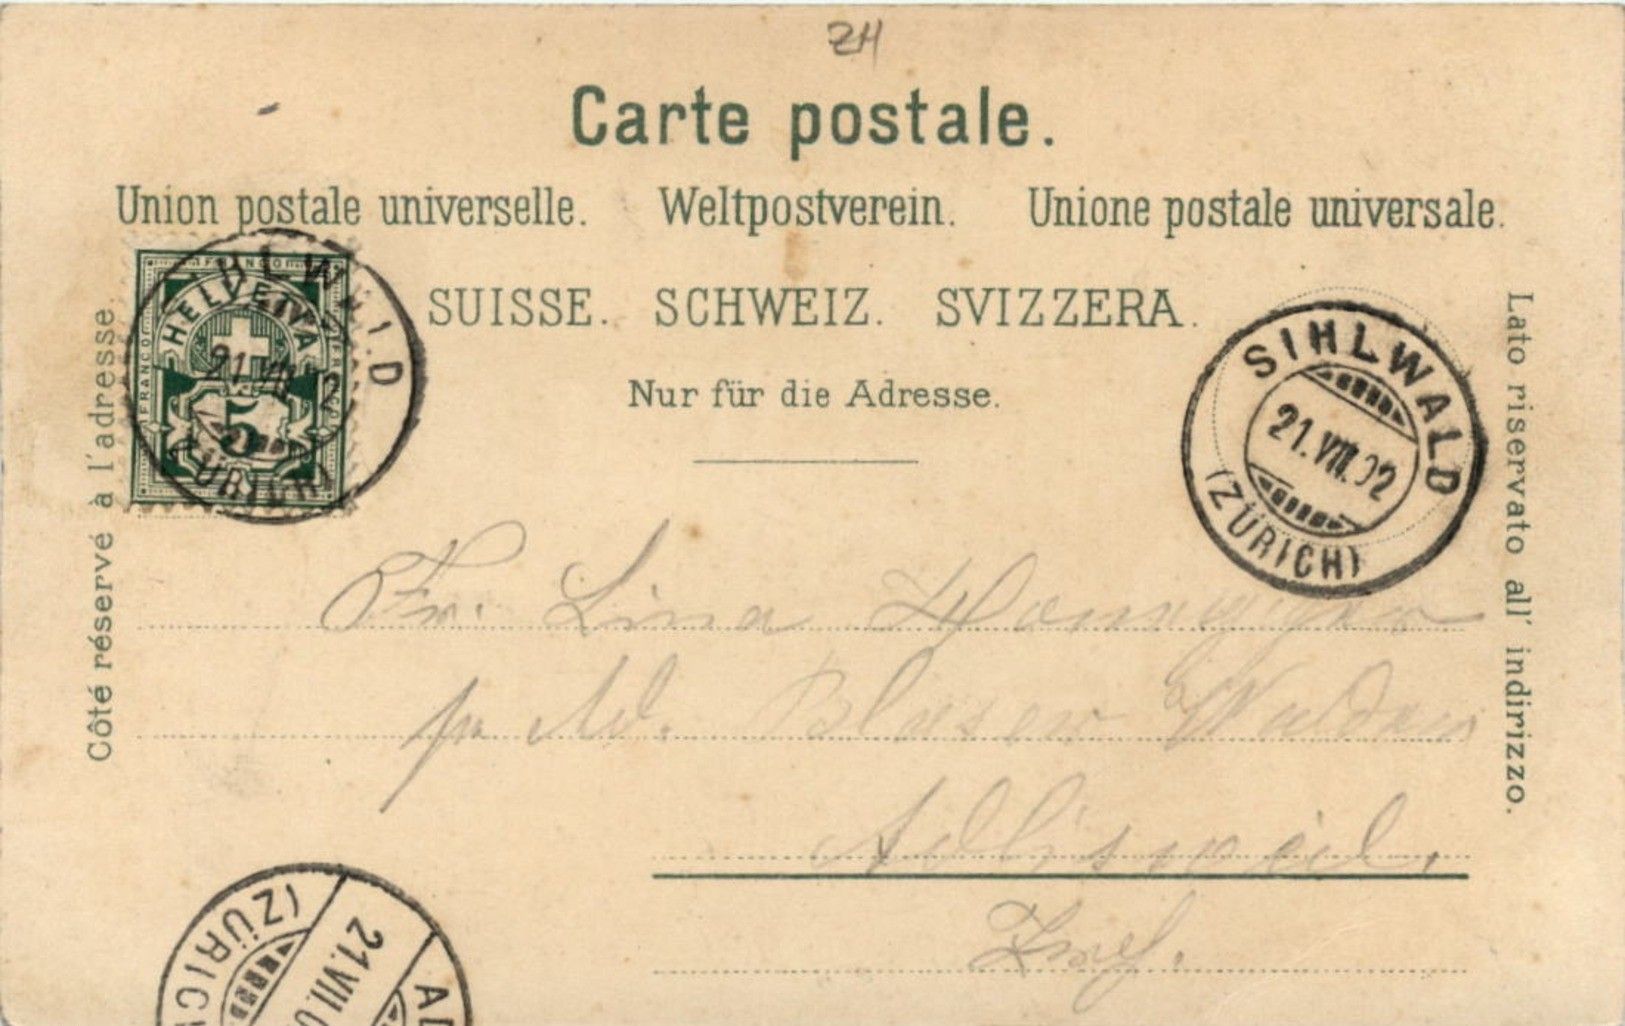 ZH
Carte postale.
Union postale universelle. Weltpostverein. Unione postale universale.
SUISSE. SCHWEIZ. SVIZZERA.
Nur für die Adresse.
Côté réservé à l'adresse.
Lato riservato all' indirizzo.
FRANCO
HELVETIA
FRANCO
5
SIHLWALD
21.VIII.02
(ZÜRICH)
SIHLWALD
21.VIII.02
(ZÜRICH)
Fr. Lina
pr Ad.
Adlisweil.
(ZÜRICH
21.VIII.0
AD